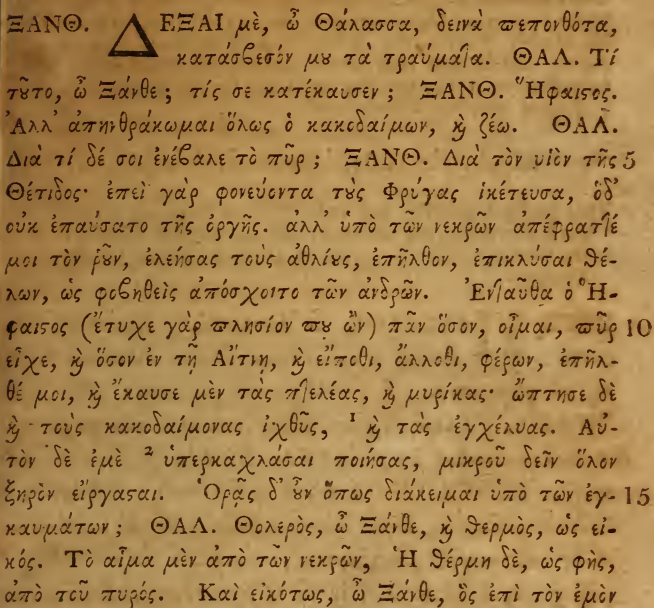 ΞΑΝΘ. ΔΕΞΑΙ μὲ, ὦ Θάλασσα, δεινὰ πεπονθότα,
κατάσβεσόν μȣ τὰ τραύματα. ΘΑΛ. Τί
τȣ͂το, ὦ Ξάνθε; τίς σε κατέκαυσεν; ΞΑΝΘ. Ἥφαιϛος.
Ἀλλ' ἀπηνθράκωμαι ὅλως ὁ κακοδαίμων, ϗ̀ ζέω. ΘΑΛ.
Διὰ τί δέ σοι ἐνέβαλε τὸ πῦρ; ΞΑΝΘ. Διὰ τὸν υἱὸν τῆς 5
Θέτιδος· ἐπεὶ γὰρ φονεύοντα τȣ̀ς Φρύγας ἱκέτευσα, ὅδ'
οὐκ ἐπαύσατο τῆς ὀργῆς. ἀλλ' ὑπὸ τῶν νεκρῶν ἀπέφραττέ
μοι τὸν ῥȣ͂ν, ἐλεήσας τοὺς ἀθλίȣς, ἐπῆλθον, ἐπικλύσαι θέ-
λων, ὡς φοβηθεὶς ἀπόσχοιτο τῶν ἀνδρῶν. Ἐνταῦθα ὁ Ἥ-
φαιϛος (ἔτυχε γὰρ πλησίον πȣ ὢν) πᾶν ὅσον, οἶμαι, πῦρ 10
εἶχε, ϗ̀ ὅσον ἐν τῇ Αἴτνῃ, ϗ̀ εἴποθι, ἄλλοθι, φέρων, ἐπῆλ-
θέ μοι, ϗ̀ ἔκαυσε μὲν τὰς πτελέας, ϗ̀ μυρίκας· ὤπτησε δὲ
ϗ̀ τοὺς κακοδαίμονας ἰχθῦς, ¹ ϗ̀ τὰς ἐγχέλυας. Αὐ-
τὸν δὲ ἐμὲ ² ὑπερκαχλασαι ποιήσας, μικροῦ δεῖν ὅλον
ξηρὸν εἴργασται. Ὁρᾷς δ' ȣ̓͂ν ὅπως διάκειμαι ὑπὸ τῶν ἐγ- 15
καυμάτων; ΘΑΛ. Θολερὸς, ὦ Ξάνθε, ϗ̀ θερμὸς, ὡς εἰ-
κός. Τὸ αἷμα μὲν ἀπὸ τῶν νεκρῶν, Ἡ θέρμη δὲ, ὡς φῂς,
ἀπὸ τοῦ πυρός. Καὶ εἰκότως, ὦ Ξάνθε, ὃς ἐπὶ τὸν ἐμὸν